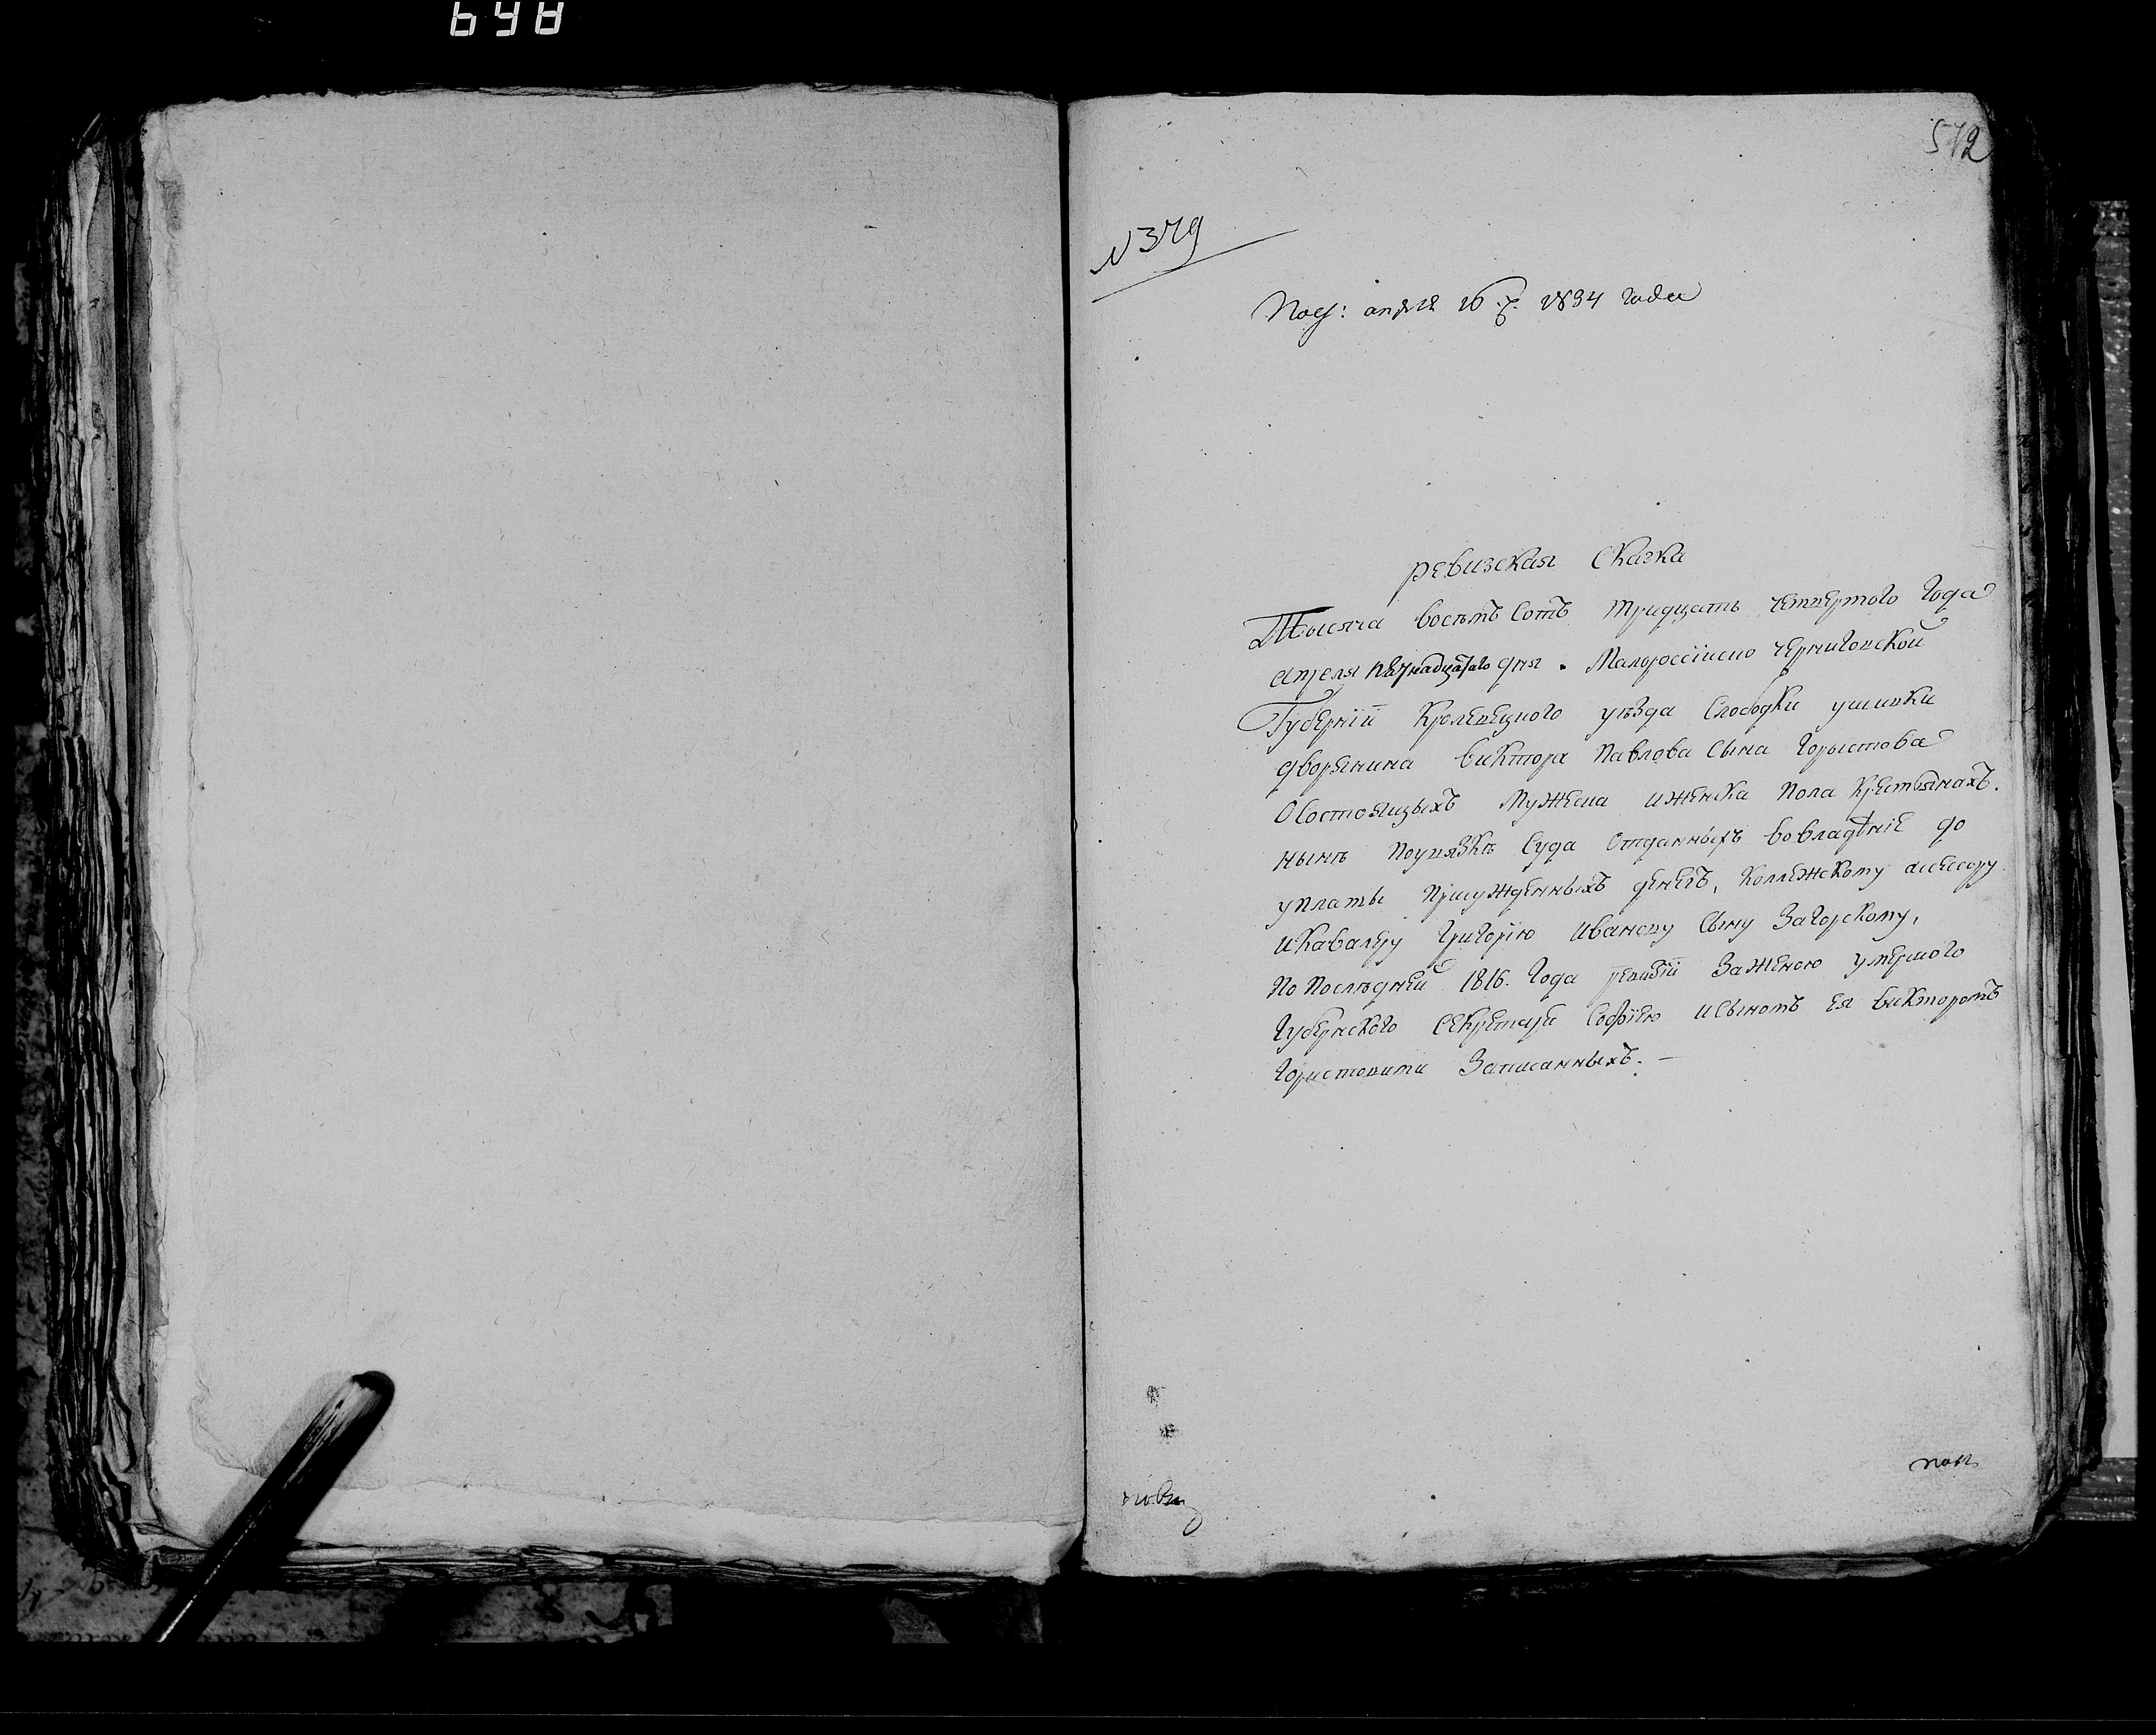 698
572
N 379
Под: апреля 16 д. 1834 года
ревизская сказка
Тысяча восемь сотъ тридцать четвертого Года
апреля пятнадцатаго дня. Малороссійско Черниговской
Губерніи Кролевецкого уѣзда Слободки ушивки
дворянина виктора Павлова Сына Гористова
О Состоящихъ Мужеска иженска Пола Крестьянахъ.
нынѣ Поуказкѣ Суда Отданныхъ вовладѣніе до
уплаты Присужденныхъ денегъ, Коллежскому асессору
иКавалеру Григорію Иванову Сыну Загорскому,
По Послѣдней 1816. Года ревизіи Заженою умершого
Губернского Секретаря Софіею иСыномъ ея викторомъ
Гористовими Записанныхъ. —